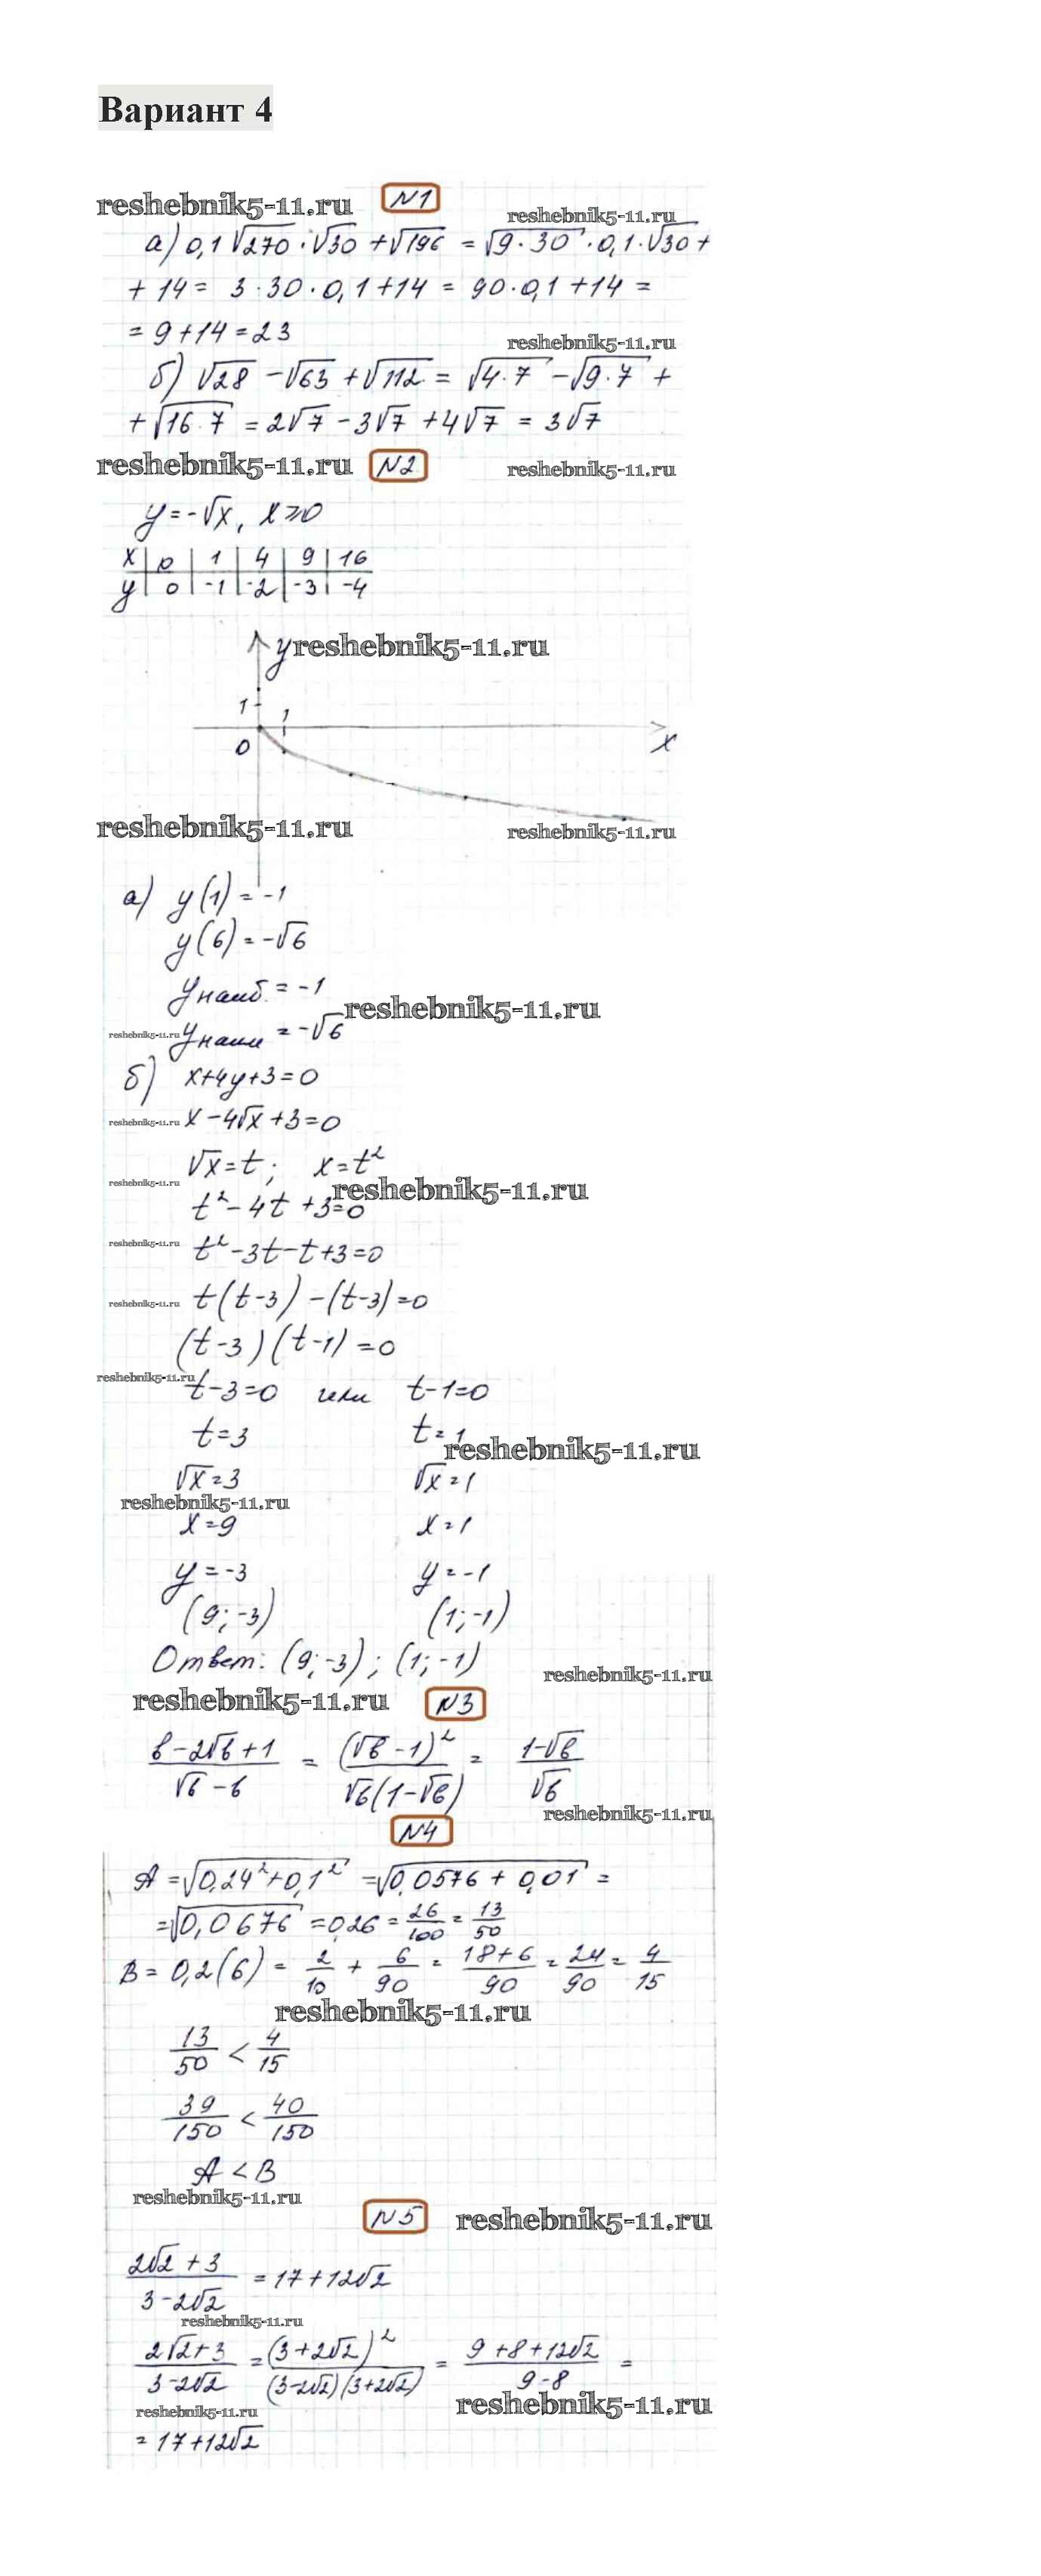 Вариант 4
reshebnik5-11.ru N1
reshebnik5-11.ru
а) 0,1√270 · √30 + √196 = √(9·30) · 0,1 · √30 +
+ 14 = 3·30·0,1 + 14 = 90·0,1 + 14 =
= 9 + 14 = 23
reshebnik5-11.ru
б) √28 - √63 + √112 = √(4·7) - √(9·7) +
+ √(16·7) = 2√7 - 3√7 + 4√7 = 3√7
reshebnik5-11.ru N2 reshebnik5-11.ru
y = -√x, x ⩾ 0
x | 0 | 1 | 4 | 9 | 16
y | 0 | -1 | -2 | -3 | -4
y reshebnik5-11.ru
1 1
0 x
reshebnik5-11.ru reshebnik5-11.ru
а) y(1) = -1
y(6) = -√6
yнаиб. = -1
reshebnik5-11.ru
reshebnik5-11.ru yнаим = -√6
б) x+4y+3=0
reshebnik5-11.ru x - 4√x + 3 = 0
√x = t; x = t²
reshebnik5-11.ru reshebnik5-11.ru
t² - 4t + 3 = 0
reshebnik5-11.ru t² - 3t - t + 3 = 0
reshebnik5-11.ru t(t-3) - (t-3) = 0
(t-3)(t-1) = 0
reshebnik5-11.ru t-3=0 или t-1=0
t=3 t=1
reshebnik5-11.ru
√x=3 √x=1
reshebnik5-11.ru
x=9 x=1
y=-3 y=-1
(9;-3) (1;-1)
Ответ: (9;-3); (1;-1)
reshebnik5-11.ru
reshebnik5-11.ru N3
(b-2√b+1)/(√b-b) = (√b-1)²/(√b(1-√b)) = (1-√b)/√b
reshebnik5-11.ru
N4
A = √(0,24²+0,1²) = √(0,0576 + 0,01) =
= √0,0676 = 0,26 = 26/100 = 13/50
B = 0,2(6) = 2/10 + 6/90 = (18+6)/90 = 24/90 = 4/15
reshebnik5-11.ru
13/50 < 4/15
39/150 < 40/150
A < B
reshebnik5-11.ru
N5 reshebnik5-11.ru
(2√2 + 3)/(3-2√2) = 17+12√2
reshebnik5-11.ru
(2√2+3)/(3-2√2) = (3+2√2)²/((3-2√2)(3+2√2)) = (9+8+12√2)/(9-8) =
reshebnik5-11.ru reshebnik5-11.ru
= 17+12√2